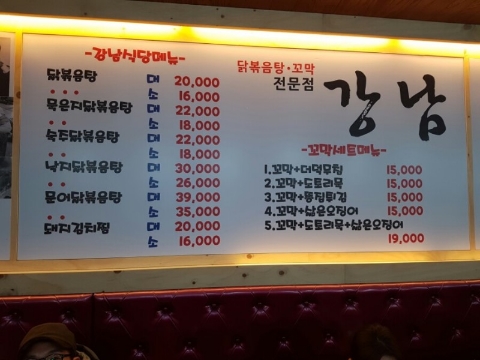 -강남식당메뉴-
닭볶음탕 대 20,000
소 16,000
묵은지닭볶음탕 대 22,000
소 18,000
숙주닭볶음탕 대 22,000
소 18,000
낙지닭볶음탕 대 30,000
소 26,000
문어닭볶음탕 대 39,000
소 35,000
돼지김치찜 대 20,000
소 16,000
닭볶음탕·꼬막
전문점
강남
-꼬막세트메뉴-
1.꼬막+더덕무침 15,000
2.꼬막+도토리묵 15,000
3.꼬막+똥집튀김 15,000
4.꼬막+삶은오징어 15,000
5.꼬막+도토리묵+삶은오징어
19,000